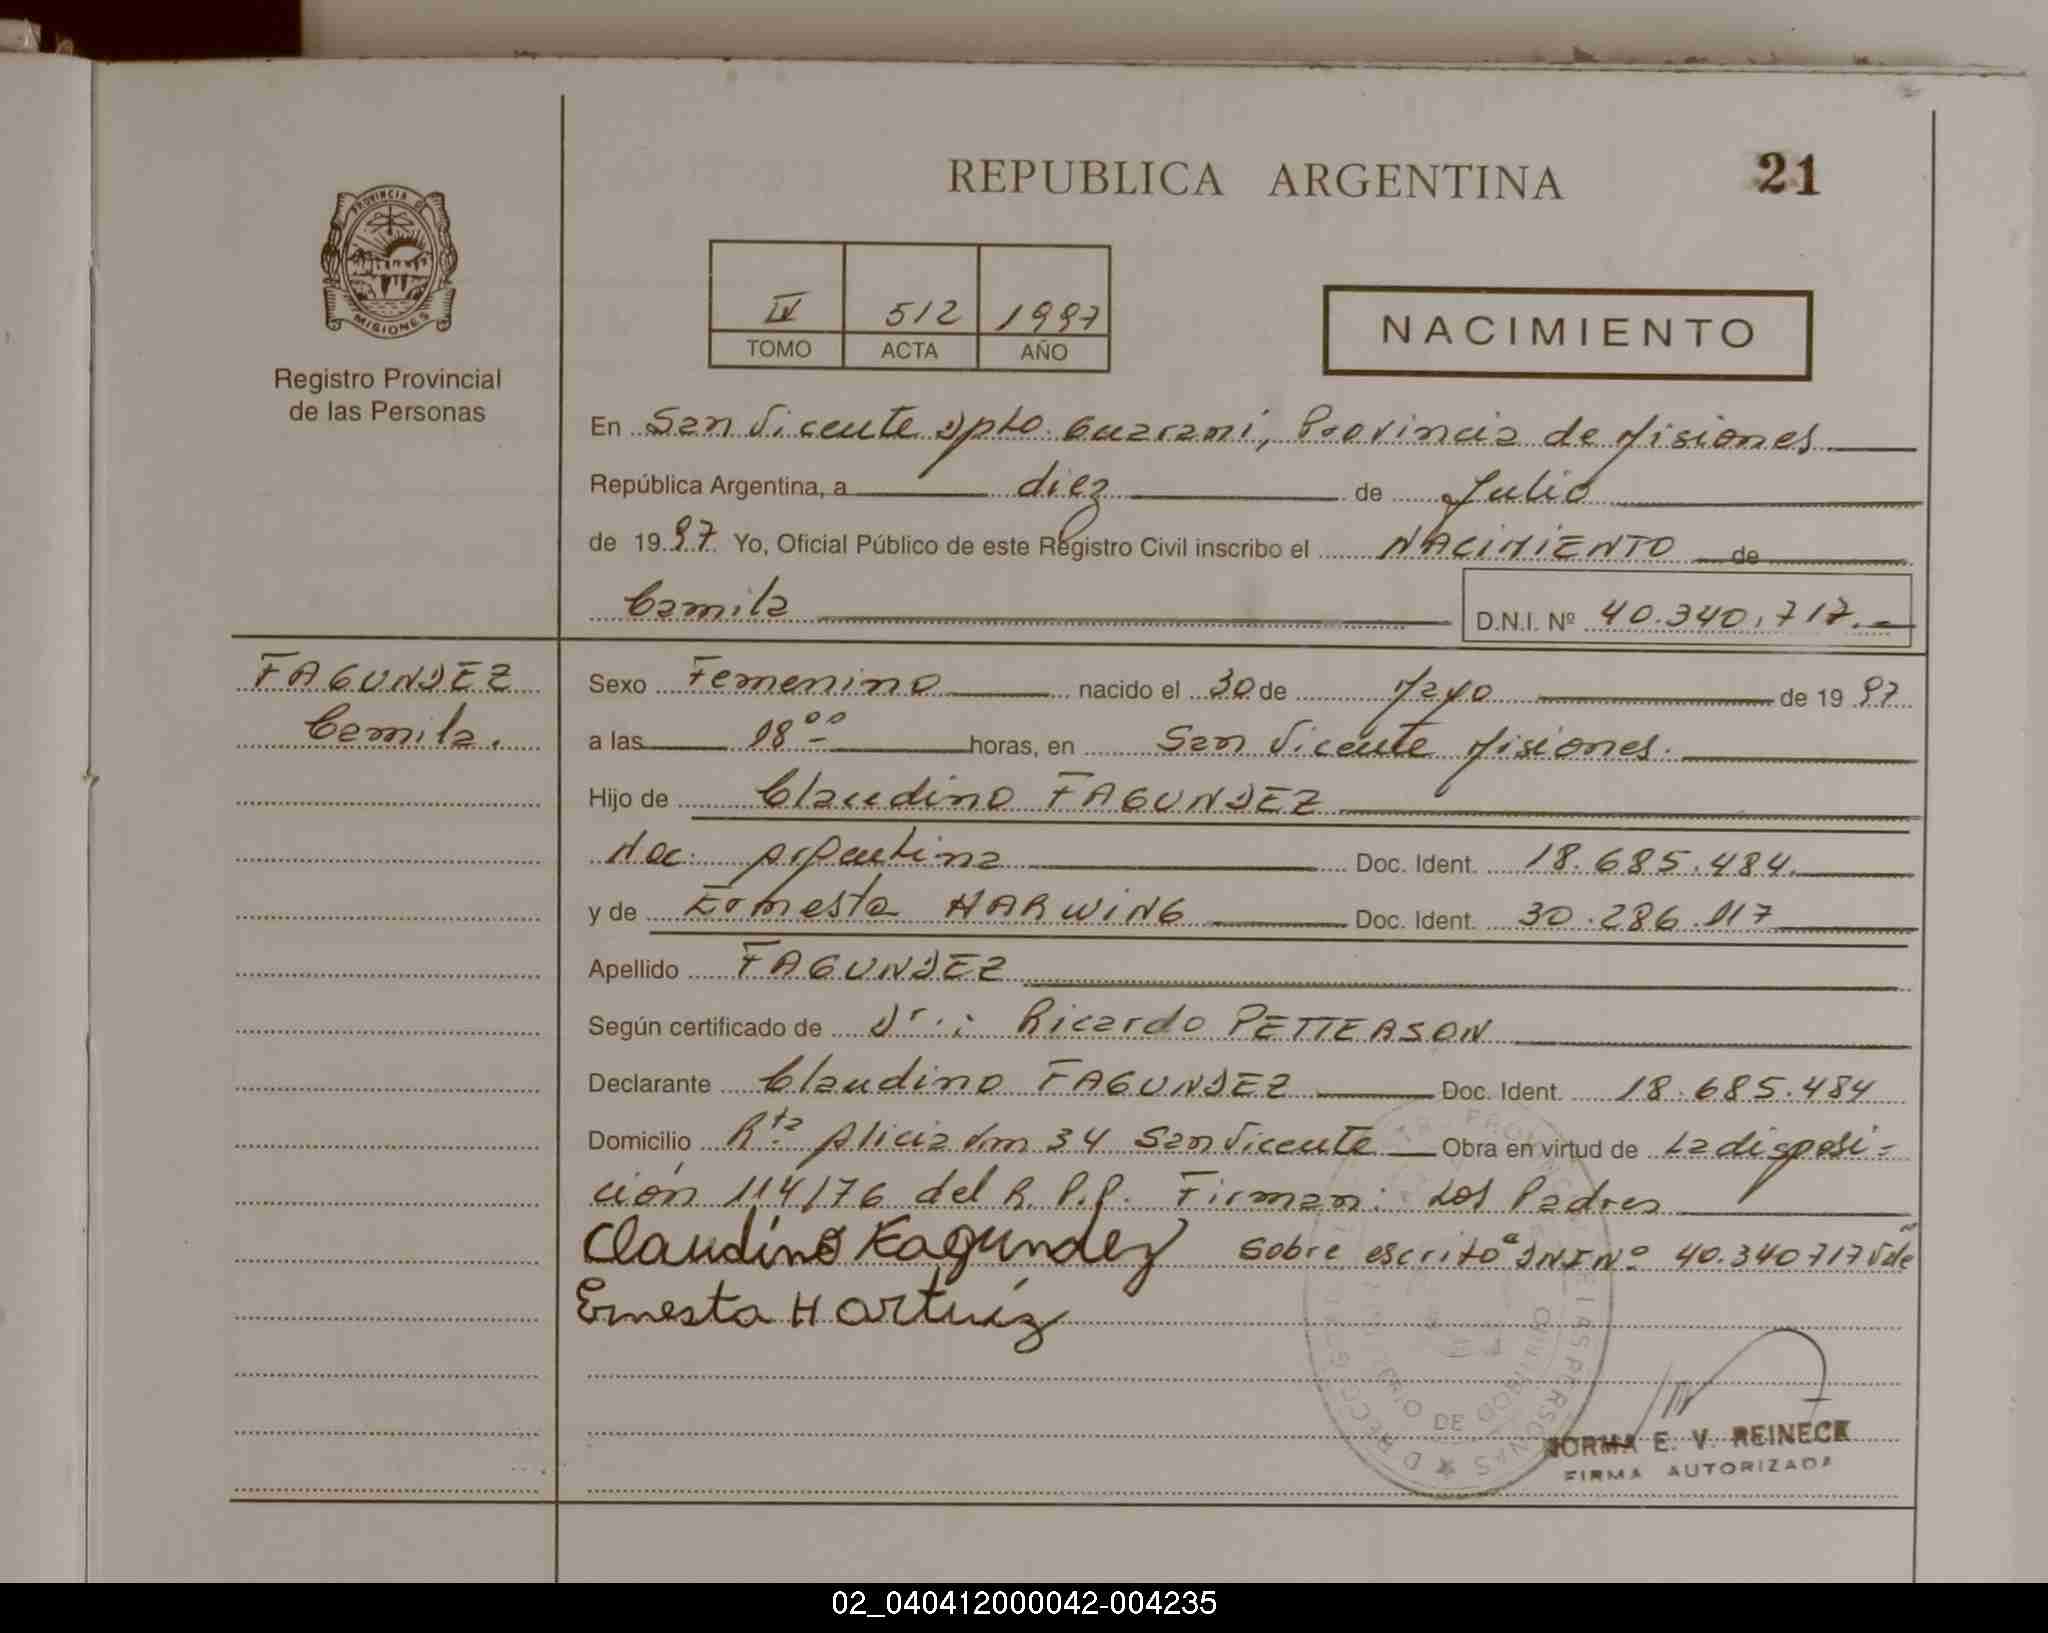 REPUBLICA ARGENTINA
21
PROVINCIA DE
MISIONES
Registro Provincial
de las Personas
IV 512 1997
TOMO ACTA AÑO
NACIMIENTO
En San Vicente Dpto. Guarani, Provincia de Misiones
República Argentina, a diez de Julio
de 1997. Yo, Oficial Público de este Registro Civil inscribo el NACIMIENTO de
Camila D.N.I. Nº 40.340.717.-
FAGUNDEZ
Camila.
Sexo Femenino nacido el 30 de Mayo de 1997
a las 18 ºº horas, en San Vicente Misiones.
Hijo de Claudino FAGUNDEZ
Nac. Argentina Doc. Ident. 18.685.484.
y de Ernesta HARWING Doc. Ident. 30.286.117
Apellido FAGUNDEZ
Según certificado de Dr.: Ricardo PETTERSON
Declarante Claudino FAGUNDEZ Doc. Ident. 18.685.484
Domicilio Rta Alicia Km 34 San Vicente Obra en virtud de La disposi-
ción 114/76 del R.P.P. Firman: Los Padres
Claudino Fagundez Sobre escrito DNI Nº 40.340717 Vale
Ernesta Hartuiz
NORMA E. V. REINECK
FIRMA AUTORIZADA
02_040412000042-004235